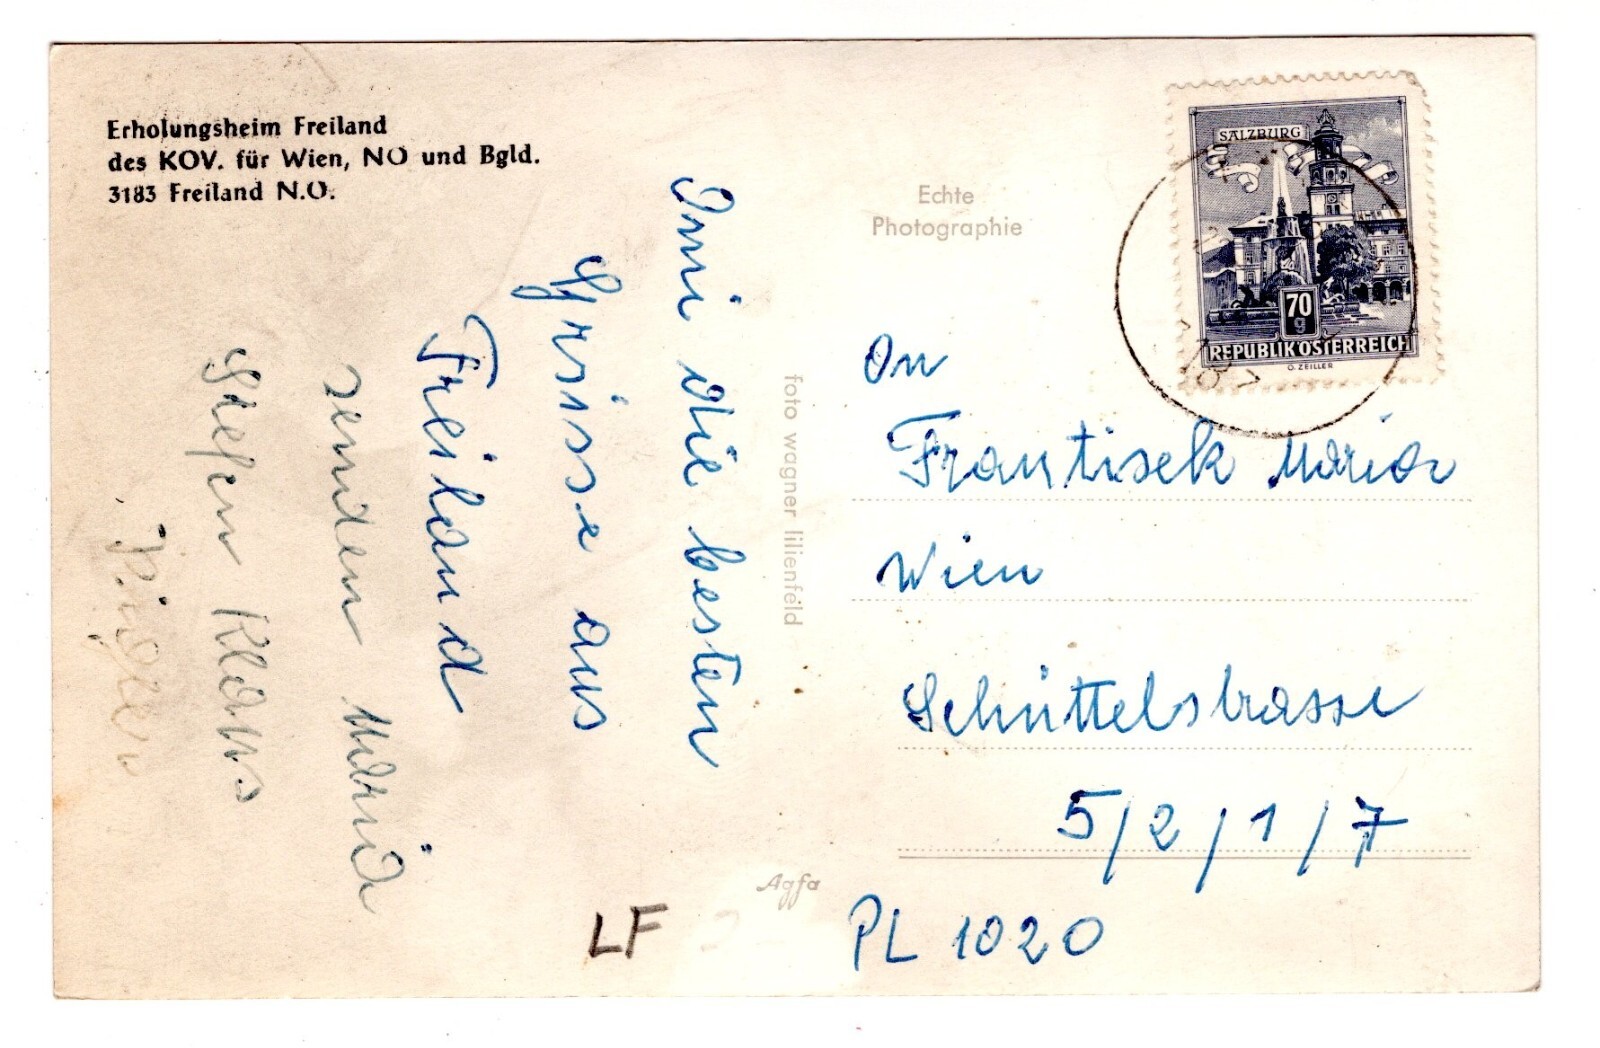 Erholungsheim Freiland
des KOV. für Wien, NÖ und Bgld.
3183 Freiland N.Ö.
Imi die besten
Grüsse aus
Freiland
senden Maria
Stefan Klaus
Echte
Photographie
foto wagner lilienfeld
Agfa
SALZBURG
70
g
REPUBLIK ÖSTERREICH
O. ZEILLER
An
Frantisek Maria
Wien
Schüttelstrasse
5/2/1/7
PL 1020
LF